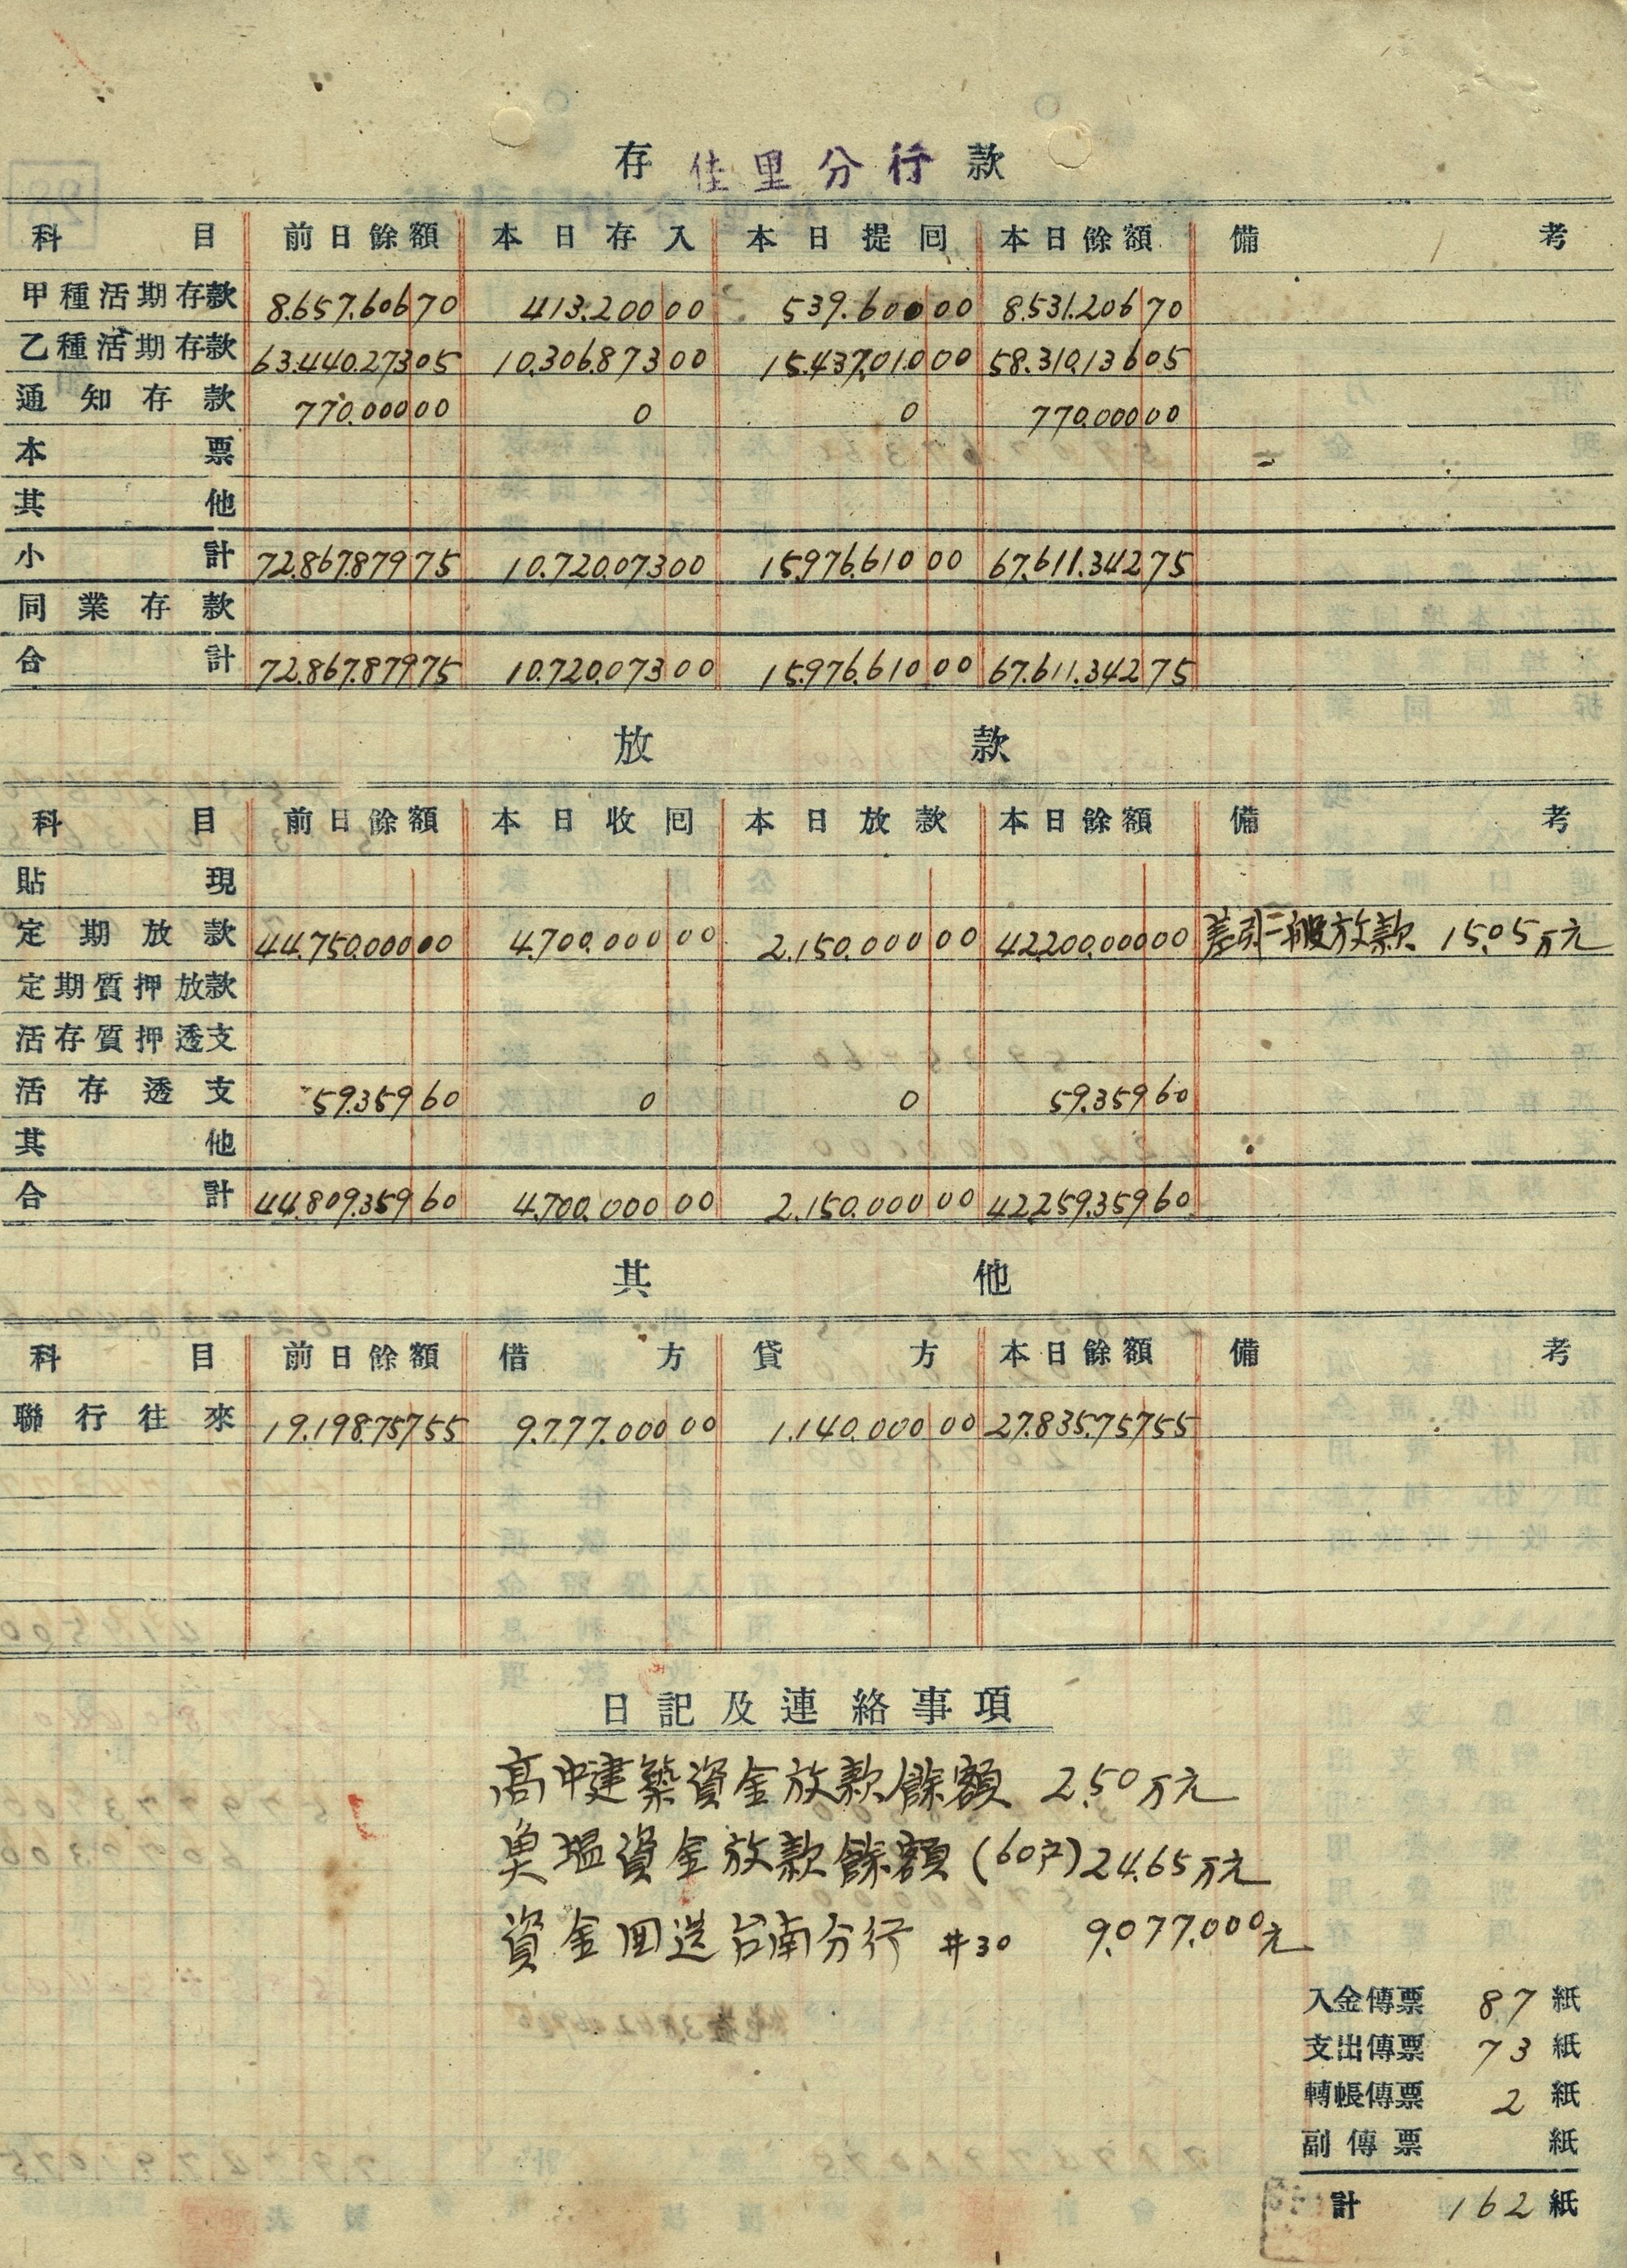 存 佳里分行 款
科目 前日餘額 本日存入 本日提囘 本日餘額 備考
甲種活期存款 8.657.606 70 413.200 00 539.600 00 8.531.206 70
乙種活期存款 63.440.273 05 10.306.873 00 15.437.010 00 58.310.136 05
通知存款 770.000 00 0 0 770.000 00
本票
其他
小計 72.867.879 75 10.720.073 00 15.976.610 00 67.611.342 75
同業存款
合計 72.867.879 75 10.720.073 00 15.976.610 00 67.611.342 75
放款
科目 前日餘額 本日收囘 本日放款 本日餘額 備考
貼現
定期放款 44.750.000 00 4.700.000 00 2.150.000 00 42.200.000 00 差引一般放款 15.05万元
定期質押放款
活存質押透支
活存透支 59.359 60 0 0 59.359 60
其他
合計 44.809.359 60 4.700.000 00 2.150.000 00 42.259.359 60
其他
科目 前日餘額 借方 貸方 本日餘額 備考
聯行往來 19.198.757 55 9.777.000 00 1.140.000 00 27.835.757 55
日記及連絡事項
高中建築資金放款餘額 2.50万元
魚塭資金放款餘額(60戶) 24.65万元
資金回送台南分行 #30 9.077.000元
入金傳票 87 紙
支出傳票 73 紙
轉帳傳票 2 紙
副傳票 紙
計 162 紙